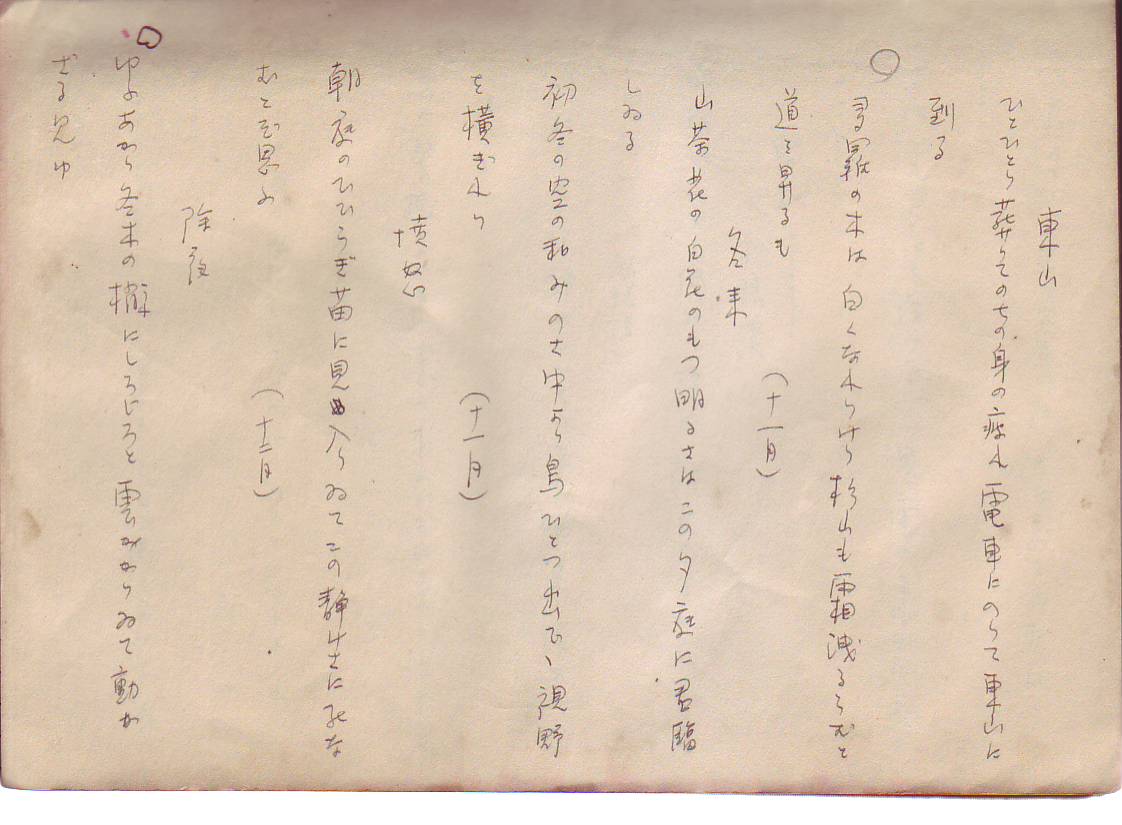 東山
ひとひとり葬りてのちの身の疲れ電車にのりて東山に
到る
の木は白くなれりけり杉山も霜洩るらむと
道を昇るも
(十一月)
冬来
山茶花の白花のもつ明るさはこの夕庭に君臨
しゐる
初冬の空の和みのさ中より鳥ひとつ出でゝ視野
を横ぎれり
(十一月)
憤怒
朝庭のひひらぎ苗に見入りゐてこの静けさに死な
むとぞ思ふ
(十二月)
除夜
ゆふあかり冬木の梢にしろじろと雲かかりゐて動か
ざる見ゆ